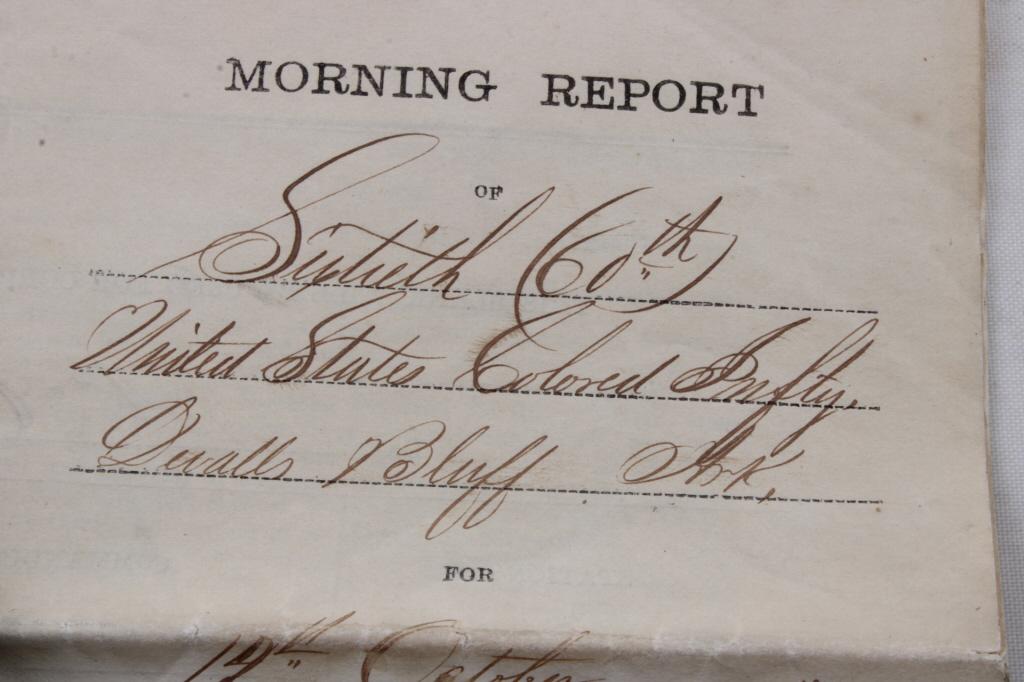 MORNING REPORT
OF
Sixtieth (60th)
United States Colored Infty.
Devalls Bluff Ark,
FOR
October